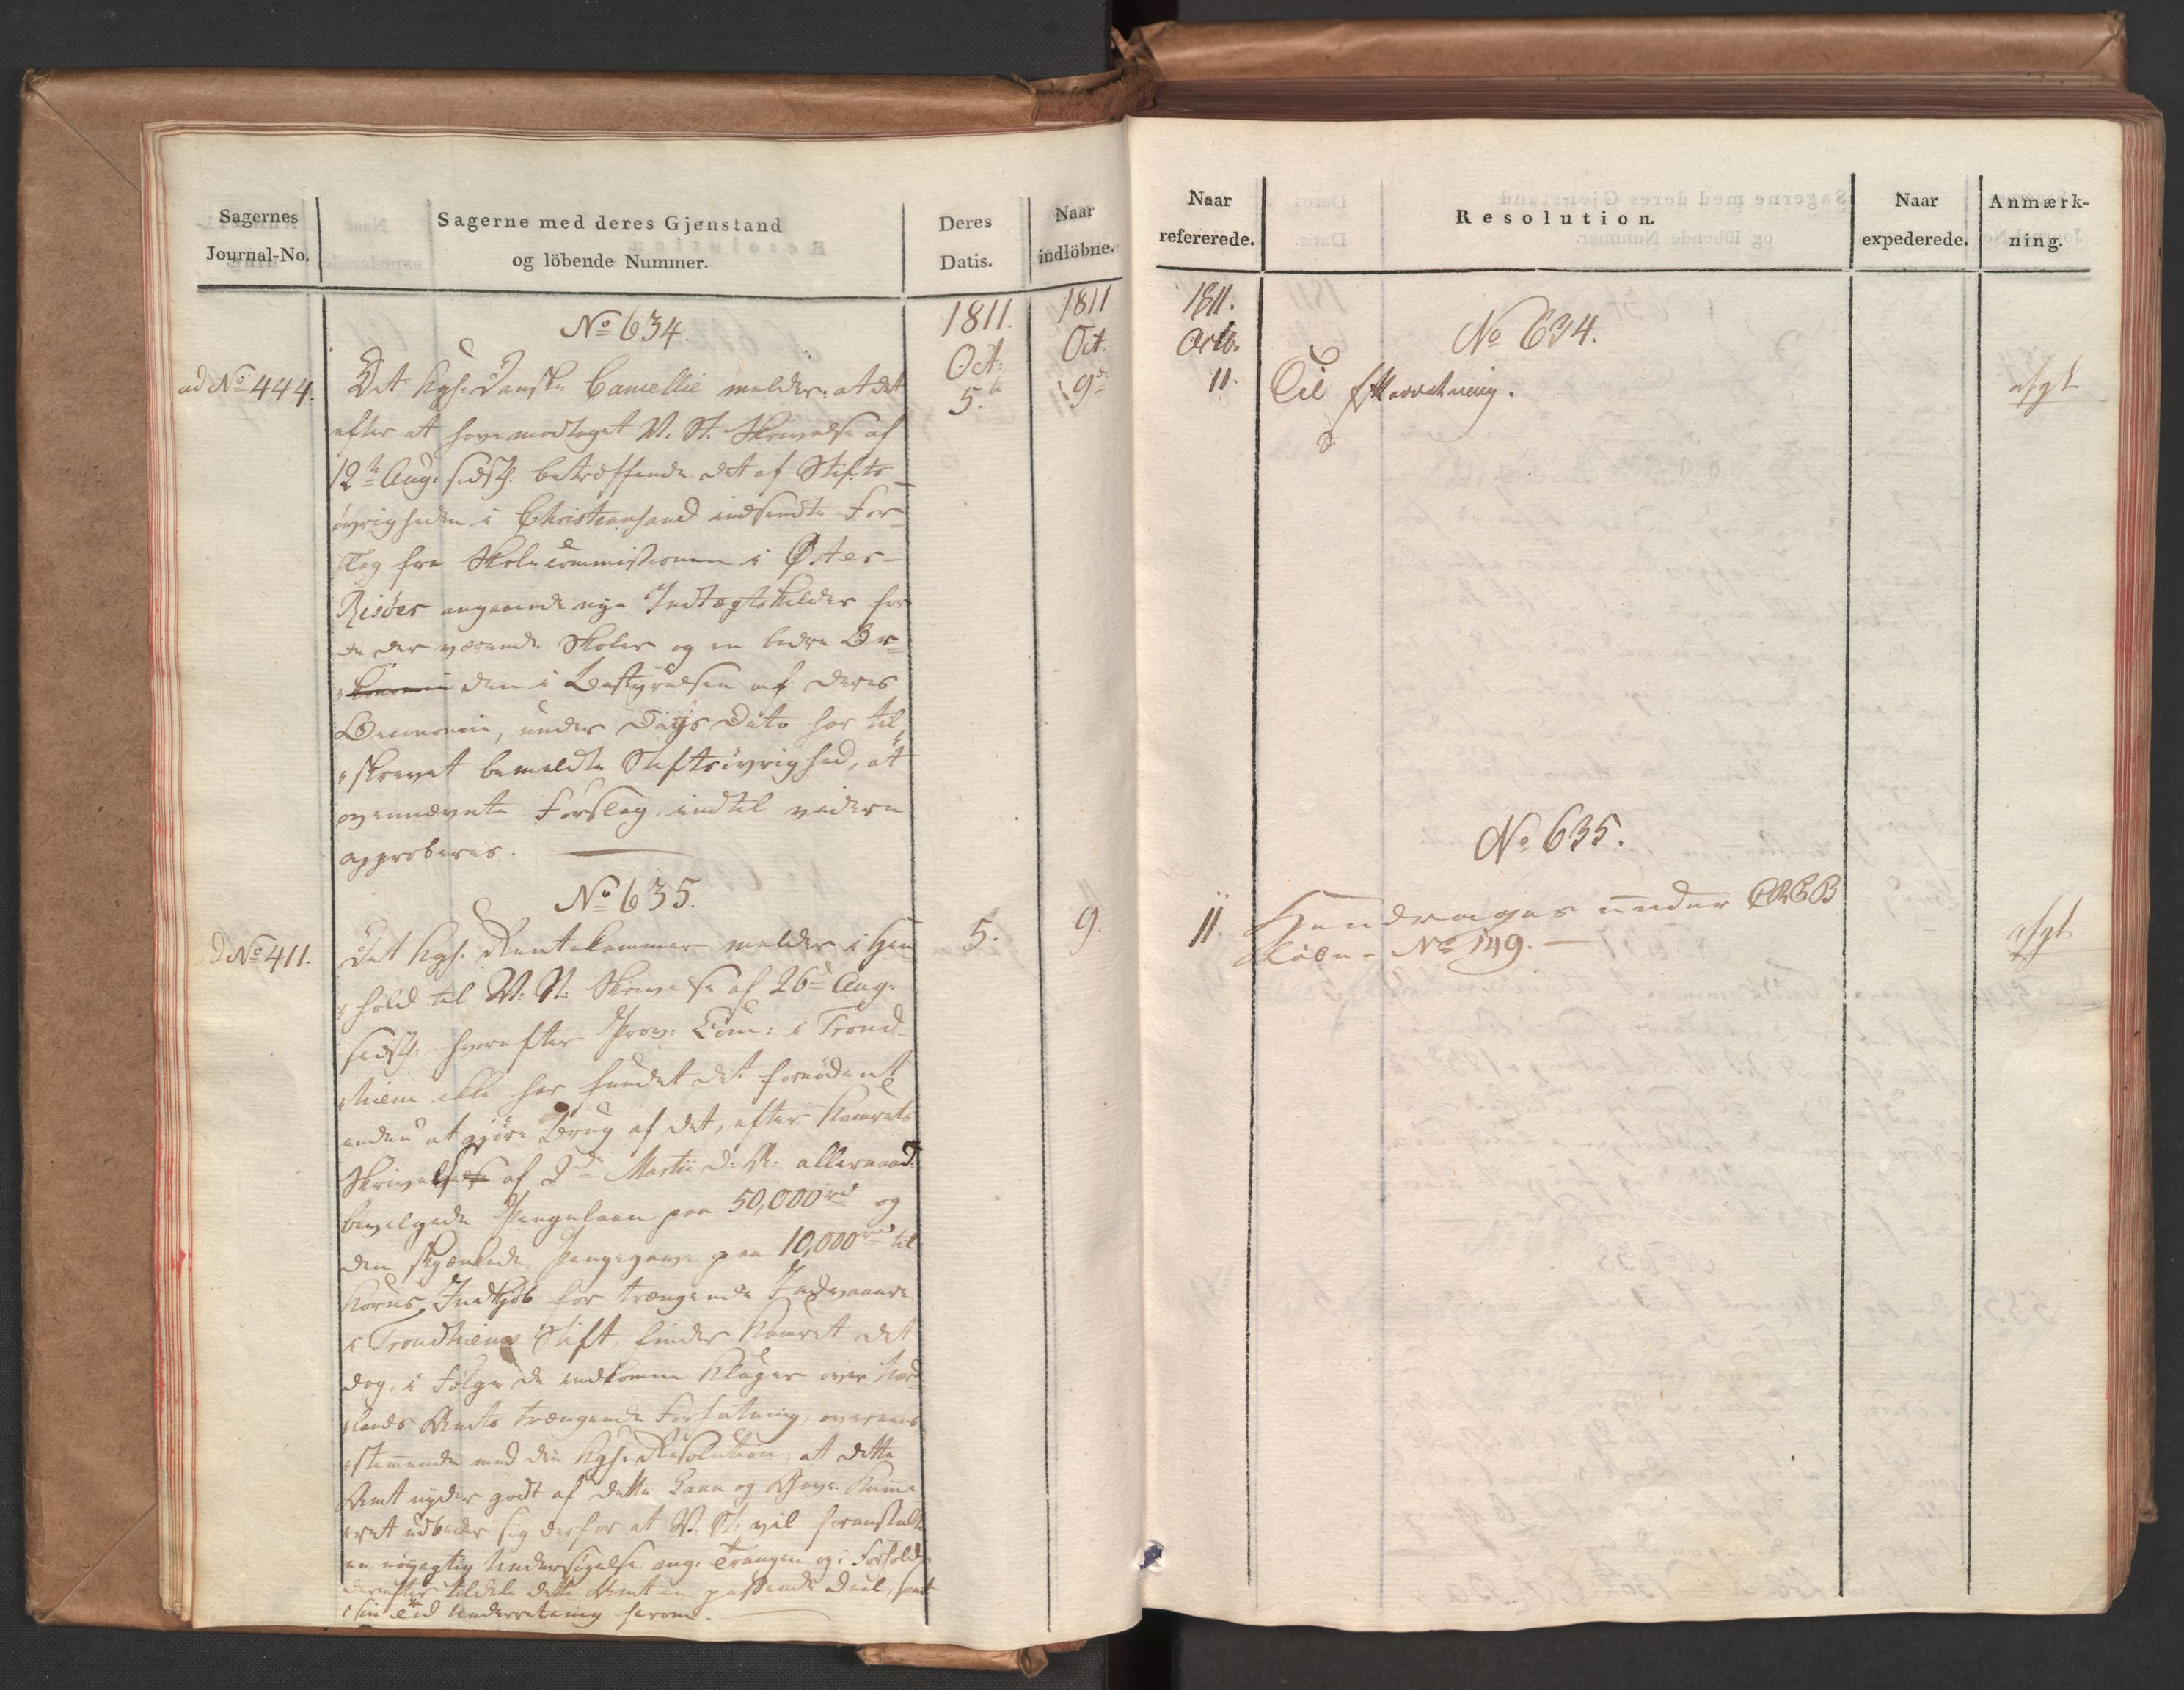 Sagernes
Journal-No.
Sagerne med deres Gjenstand
og löbende Nummer.
Deres
Datis.
Naar
indlöbne.
No 634.
1811.
Oct:
5te
1811
Oct.
9de
ad No 444.
Det Kgl. Danske Cancellie melder: at det
efter at have modtaget V. St. Skrivelse af
12te Aug: sidstl. betræffende det af Stifts-
övrigheden i Christiansand indsendte For-
slag fra Skolecommissionen i Øster-
Risöer angaaende nye Indtægtskilder for
de der værende Skoler og en bedre Or-
den i Bestyrelsen af deres
Oeconomie, under Dags Dato har til
skrevet bemeldte Stiftsövrighed, at
ovennævnte Forslag indtil videre
approberes.
No 635.
d No 411.
5.
9.
Det Kgl. Rentekammer melder i Hen
hold til V. St. Skrivelse af 26de Aug.
sidstl. hvorefter Prov: Com: i Trond-
hiem ikke har fundet det fornödent
endnu at gjöre Brug af det, efter Kamrets
Skrivelse af 2de Martii d: A: allernaad.
bevilgede Pengelaan paa 50,000 rd og
den skjænkede Pengegave paa 10,000 rd til
Korns Indkjöb for trængende Indvaanere
i Trondhiems Stift, finder Kamret det
dog, i Fölge de indkomne Klager over Nord
lands Amts trængende Forfatning, overeens
stemmende med den Kgl. Resolution, at dette
Amt nyder godt af dette Laan og Gave. Kamme
ret udbeder sig derfor at V. St. vil foranstalte
en nöyagtig Undersögelse ang. Trangen og i Forhold
derefter tildele dette Amt en passende Deel, samt
i sin Tid Underretning herom.
Naar
refererede.
Resolution.
Naar
expederede.
Anmærk-
ning.
1811.
Octb.
11.
No 634.
Til Efterretning.
afgt
No 635.
11
Hendrages under PRCB
Löbe No 149.
afgt